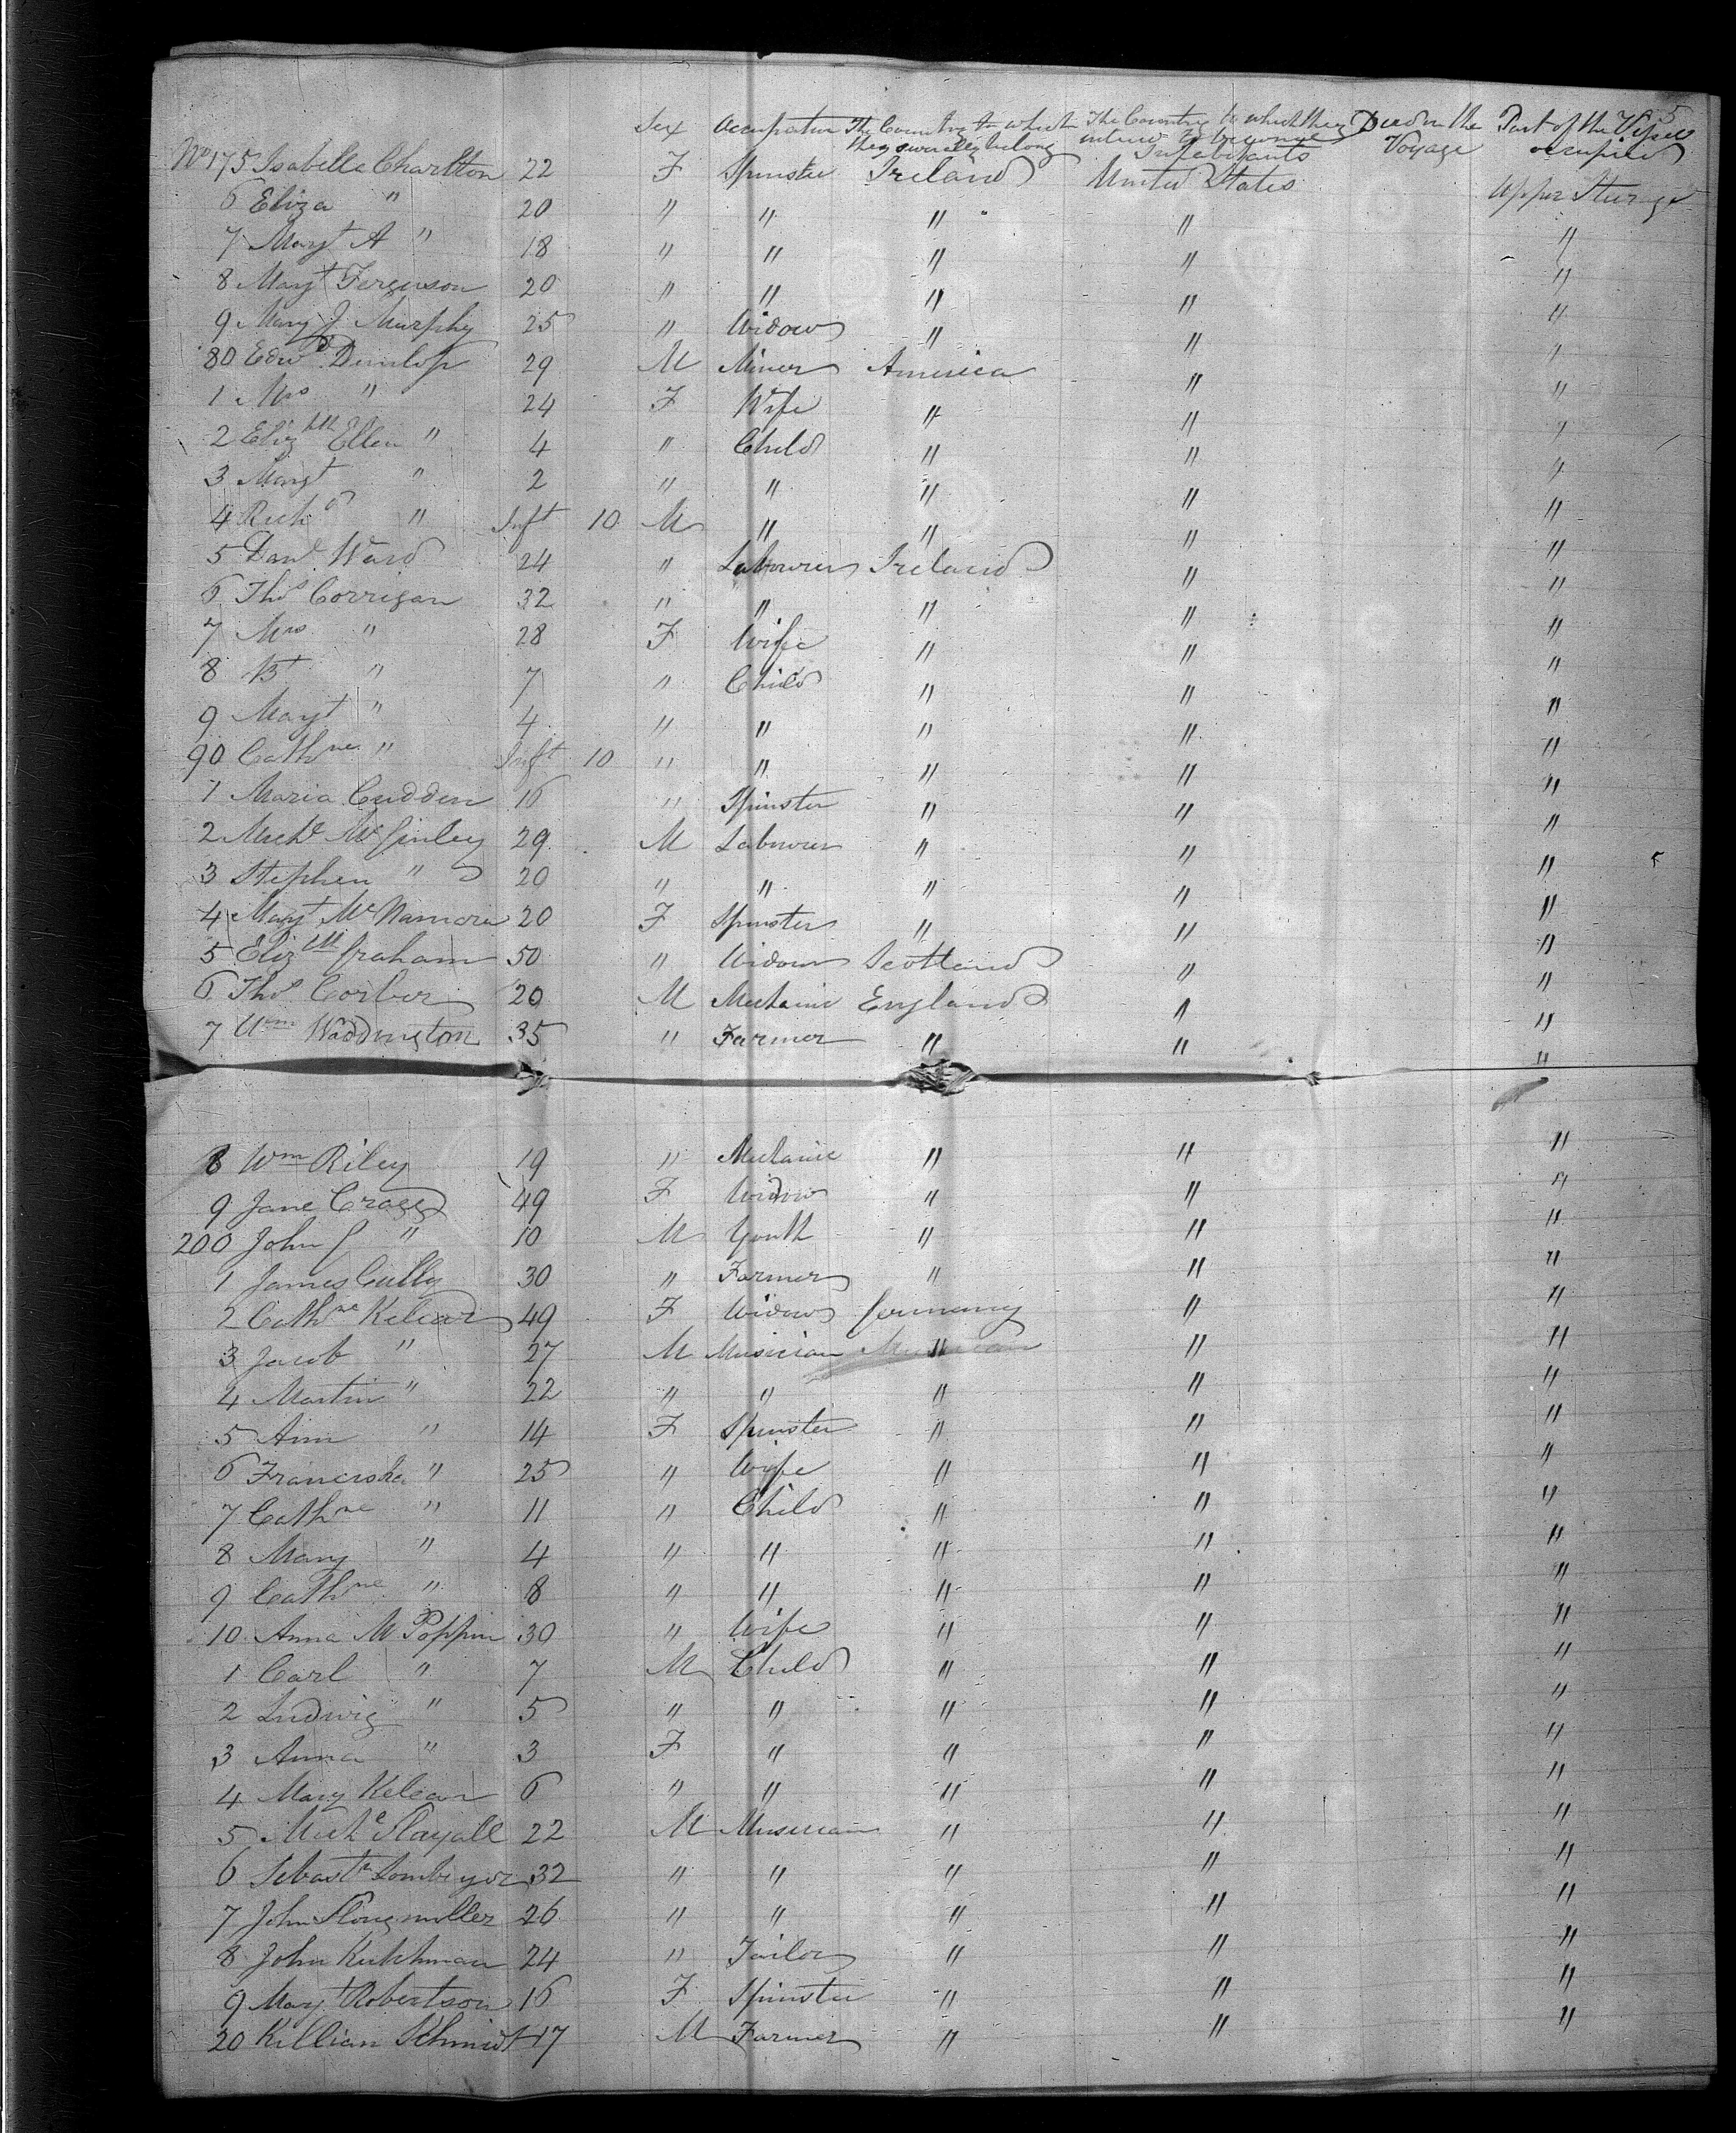 5
Sex Occupation The Country to which they severally belong The Country to which they intend to become Inhabitants Died on the Voyage Part of the Vessel occupied
No 175 Isabella Charlton 22 F Spinster Ireland United States Upper Steerage
6 Eliza " 20 " " " " "
7 Margt A " 18 " " " " "
8 Margt Ferguson 20 " " " " "
9 Mary J Murphy 25 " Widow " " "
80 Edwd Dunlop 29 M Miner America " "
1 Mrs " 24 F Wife " " "
2 Elizbth Ellen " 4 " Child " " "
3 Margt " 2 " " " " "
4 Richd " Inft 10 M " " " "
5 Danl Ward 24 " Labourer Ireland " "
6 Thos Corrigan 32 " " " " "
7 Mrs " 28 F Wife " " "
8 Bt " 7 " Child " " "
9 Margt " 4 " " " " "
90 Cathne " Inft 10 " " " " "
1 Maria Cudden 16 " Spinster " " "
2 Michl McGinley 29 M Labourer " " "
3 Stephen " 20 " " " " "
4 Margt McNamara 20 F Spinster " " "
5 Elizbth Graham 50 " Widow Scotland " "
6 Thos Corber 20 M Mechanic England " "
7 Wm Waddington 35 " Farmer " " "
8 Wm Riley 19 " Mechanic " " "
9 Jane Cragg 49 F Widow " " "
200 John G " 10 M Youth " " "
1 James Cully 30 " Farmer " " "
2 Cathne Kelear 49 F Widow Germany " "
3 Jacob " 27 M Musician " " "
4 Martin " 22 " " " " "
5 Ann " 14 F Spinster " " "
6 Franciska " 25 " Wife " " "
7 Cathne " 11 " Child " " "
8 Mary " 4 " " " " "
9 Cathne " 8 " " " " "
10 Anna M Poppin 30 " Wife " " "
1 Carl " 7 M Child " " "
2 Ludwig " 5 " " " " "
3 Anna " 3 F " " " "
4 Mary Kelear 6 " " " " "
5 Michl Slayall 22 M Musician " " "
6 Sebastn 32 " " " " "
7 John 26 " " " " "
8 John Kukhman 24 " Tailor " " "
9 Margt Robertson 16 F Spinster " " "
20 Killian Schmidt 17 M Farmer " " "